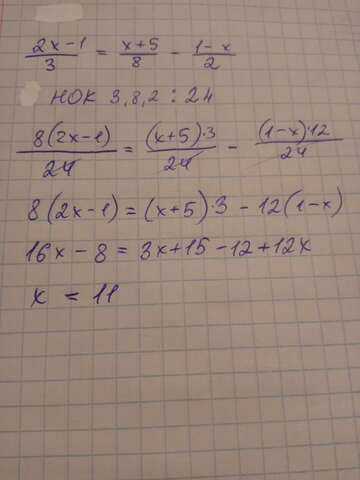 (2x-1)/3 = (x+5)/8 - (1-x)/2
НОК 3,8,2 : 24
8(2x-1)/24 = (x+5)·3/24 - (1-x)·12/24
8(2x-1) = (x+5)·3 - 12(1-x)
16x - 8 = 3x+15-12+12x
x = 11